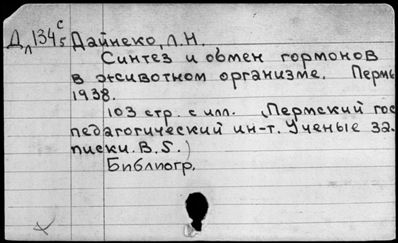 Д л134 с/5 Дайнеко, Л.Н.
Синтез и обмен гормонов
в животном организме. Пермь
1938.
103 стр. с илл. (Пермский гос
педагогический ин-т. Ученые за-
писки. В. 5.)
Библиогр.